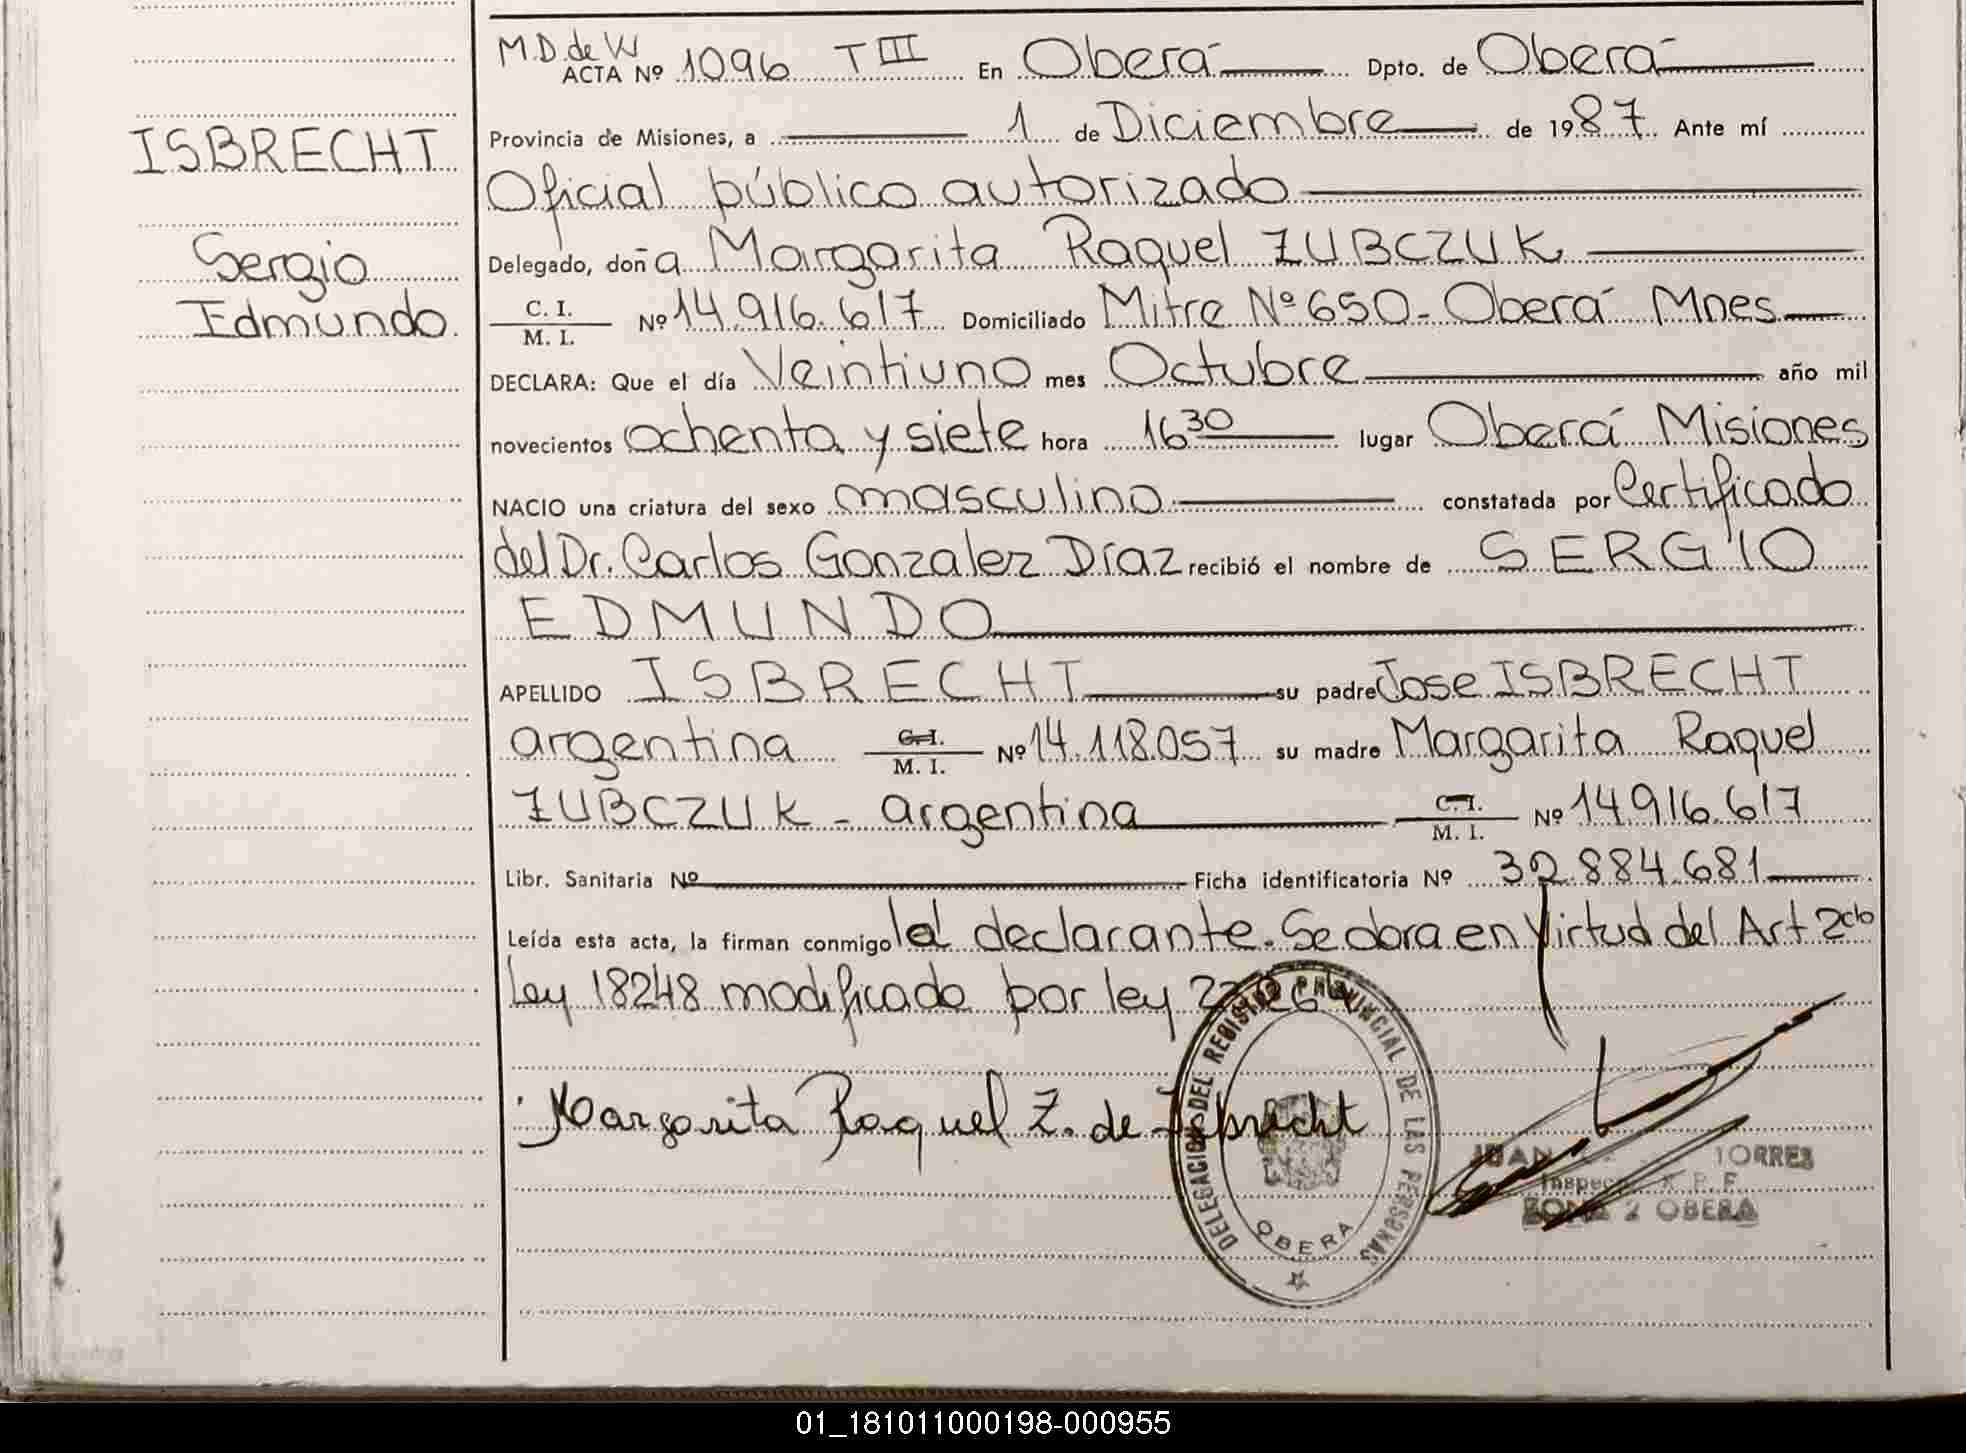 M.D. de W
ACTA Nº 1096 TIII En Oberá Dpto. de Oberá
ISBRECHT
Provincia de Misiones, a 1 de Diciembre de 1987 Ante mí
Oficial público autorizado
Sergio
Delegado, doña Margarita Raquel ZUBCZUK
Edmundo
C. I. / M. I. Nº 14.916.617 Domiciliado Mitre Nº 650- Oberá Mnes
DECLARA: Que el día Veintiuno mes Octubre año mil
novecientos ochenta y siete hora 16 30 lugar Oberá Misiones
NACIO una criatura del sexo masculino constatada por Certificado
del Dr. Carlos Gonzalez Díaz recibió el nombre de SERGIO
EDMUNDO
APELLIDO ISBRECHT su padre Jose ISBRECHT
argentina C. I. / M. I. Nº 14.118.057 su madre Margarita Raquel
ZUBCZUK - argentina C. I. / M. I. Nº 14.916.617
Libr. Sanitaria Nº Ficha identificatoria Nº 32.884.681
Leída esta acta, la firman conmigo la declarante. Se labra en Virtud del Art 2do
Ley 18248 modificado por ley
Margarita Raquel Z. de Isbrecht
DELEGACION DEL REGISTRO PROVINCIAL DE LAS PERSONAS
OBERA
JUAN TORRES
ZONA 2 OBERA
01_181011000198-000955